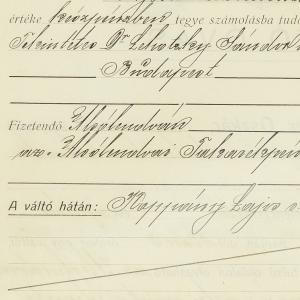 értéke készpénzben tegye számolásba tud
Tekintetes Dr Lehotzky Sándor
Budapest
Fizetendő Alsólendván
az Alsólendvai Takarékpén
A váltó hátán: Koppány Lajos